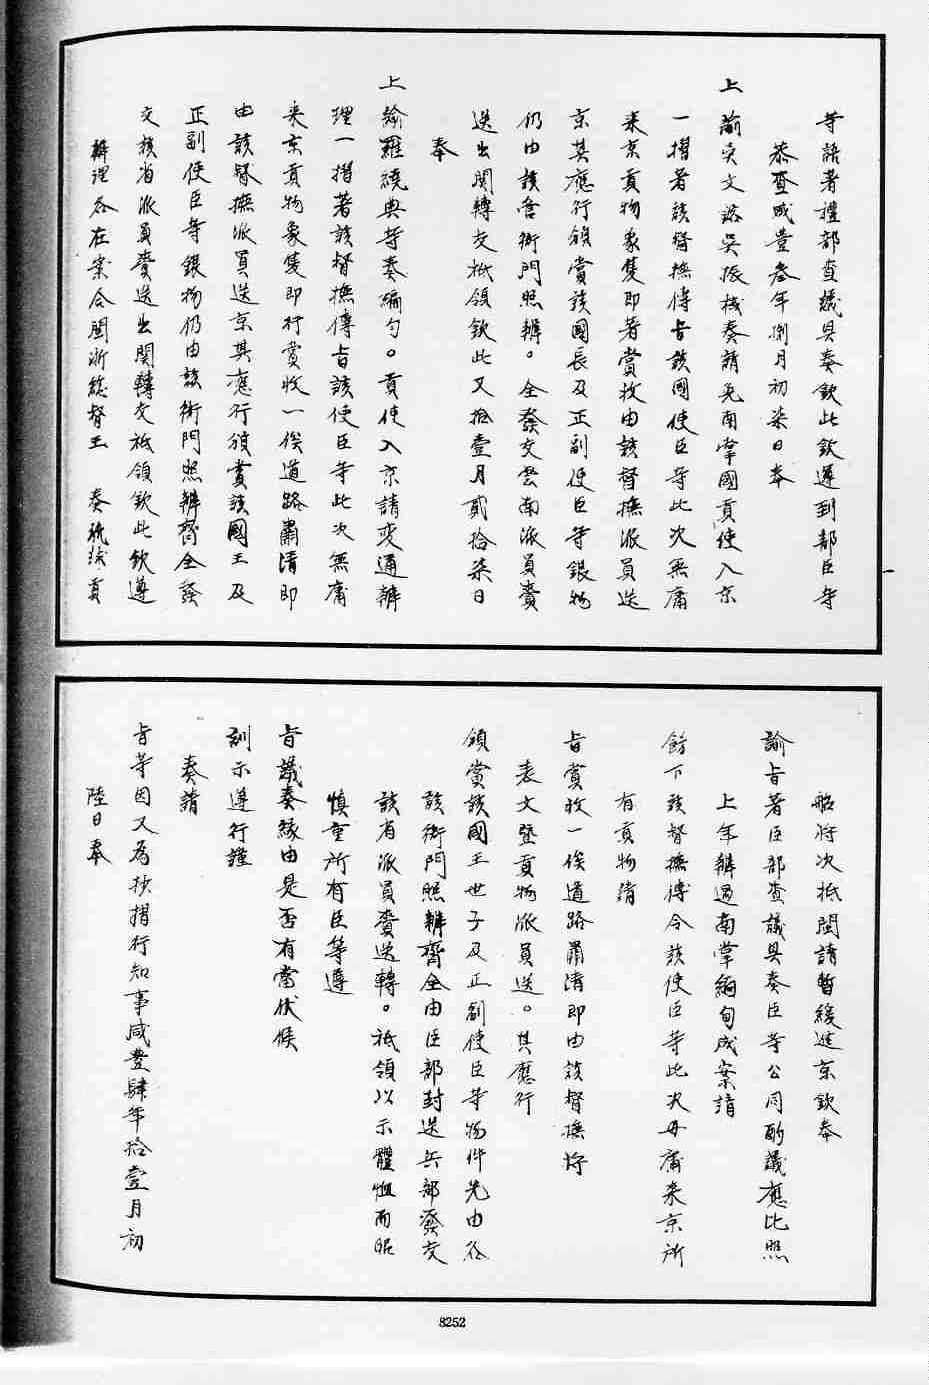 等語著禮部查議具奏欽此欽遵到部臣等
恭查咸豐叁年捌月初柒日奉
上諭吳文鎔吳振棫奏請免南掌國貢使入京
一摺著該督撫傳旨該國使臣等此次無庸
来京貢物象隻即著賞收由該督撫派員送
京其應行頒賞該國長及正副使臣等銀物
仍由該舊衙門照辦。全發交雲南派員賚
送出関轉交祗領欽此又拾壹月貳拾柒日
奉
上諭羅繞典等奏緬匄。貢使入京請変通辦
理一摺著該督撫傳旨該使臣等此次無庸
来京貢物象隻即行賞收一俟道路肅清即
由該督撫派員送京其應行頒賞該國王及
正副使臣等銀物仍由該衙門照辦齊全發
交該省派員賚送出関轉交祗領欽此欽遵
辦理各在案今閩浙總督王 奏琉球貢
船將次抵閩請暫緩進京欽奉
諭旨著臣部查議具奏臣等公同酌議應比照
上年辦過南掌緬甸成案請
飭下該督撫傳令該使臣等此次毋庸来京所
有貢物請
旨賞收一俟道路肅清即由該督撫將
表文暨貢物派員送。其應行
頒賞該國王世子及正副使臣等物件先由各
該衙門照辦齊全由臣部封送兵部發交
該省派員賚送轉。祗領以示體恤而昭
慎重所有臣等遵
旨議奏緣由是否有當伏候
訓示遵行謹
奏請
旨等因又為抄摺行知事咸豐肆年拾壹月初
陸日奉
8252